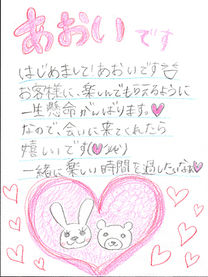 あおいです
はじめまして!あおいです
お客様に、楽しんでもらえるように
一生懸命がんばります。
なので、会いに来てくれたら
嬉しいです
一緒に楽しい時間を過したいなぁ